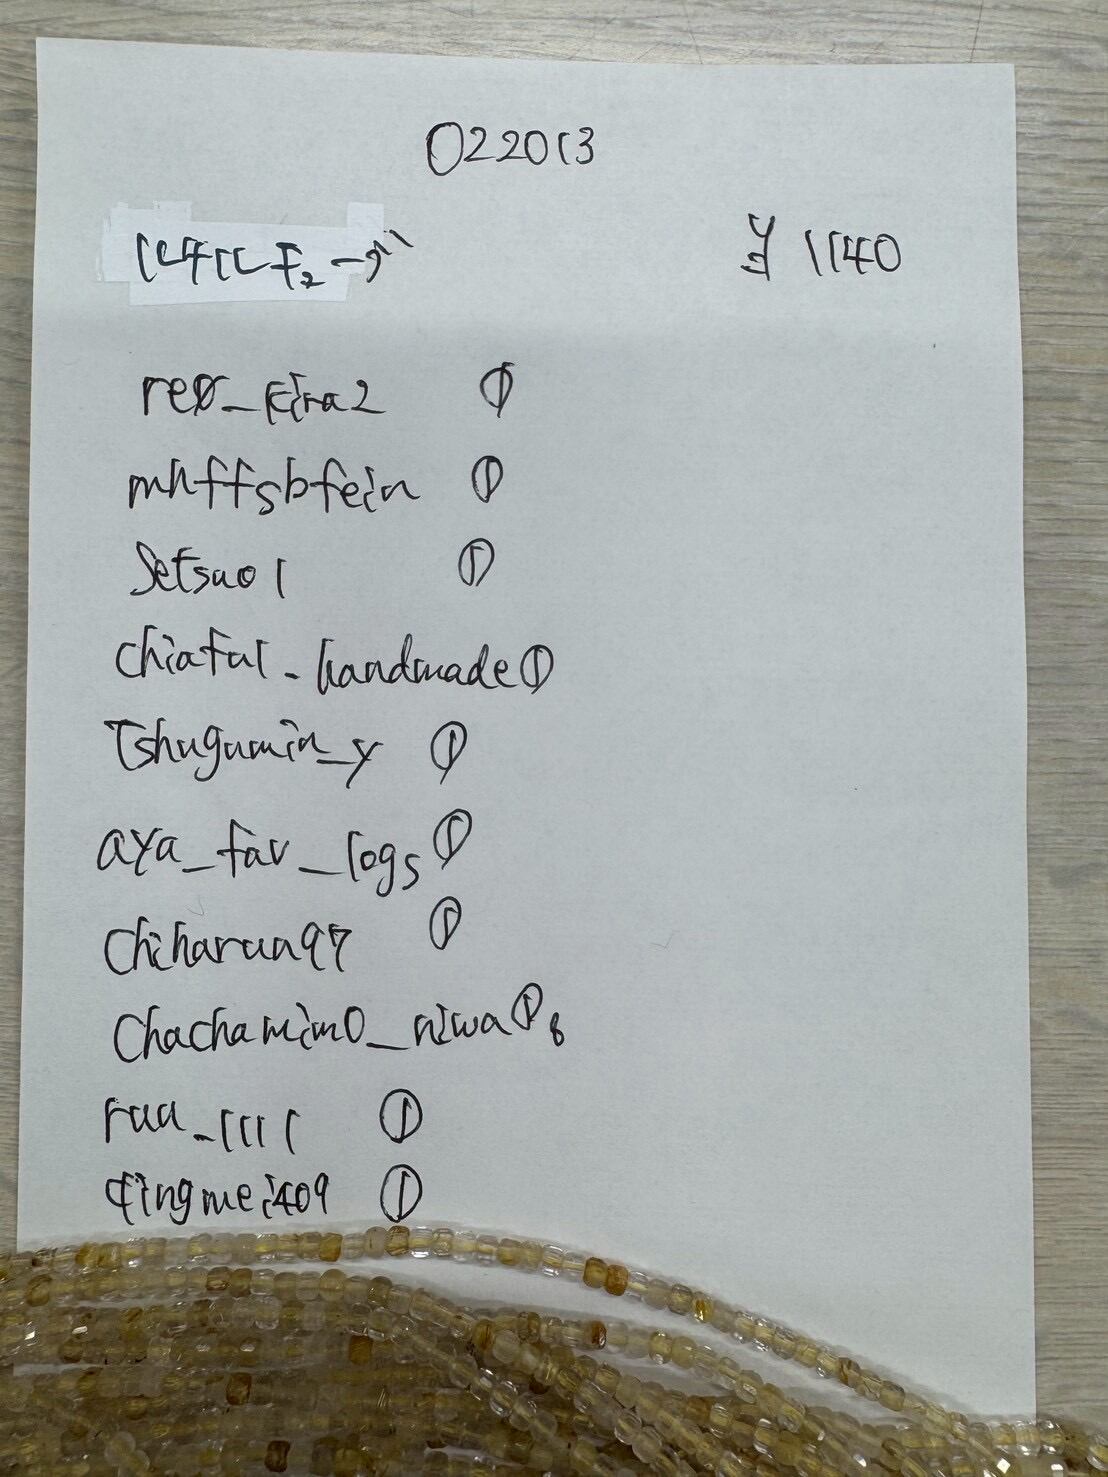 022013
¥ 1140
reo_kira2 ①
mhffsbfein ①
Setsuo1 ①
chiaful_handmade ①
tshugumin_y ①
aya_fav_logs ①
chiharun97 ①
chachamim0_niwa ① 8
ruu_1111 ①
qingmei409 ①